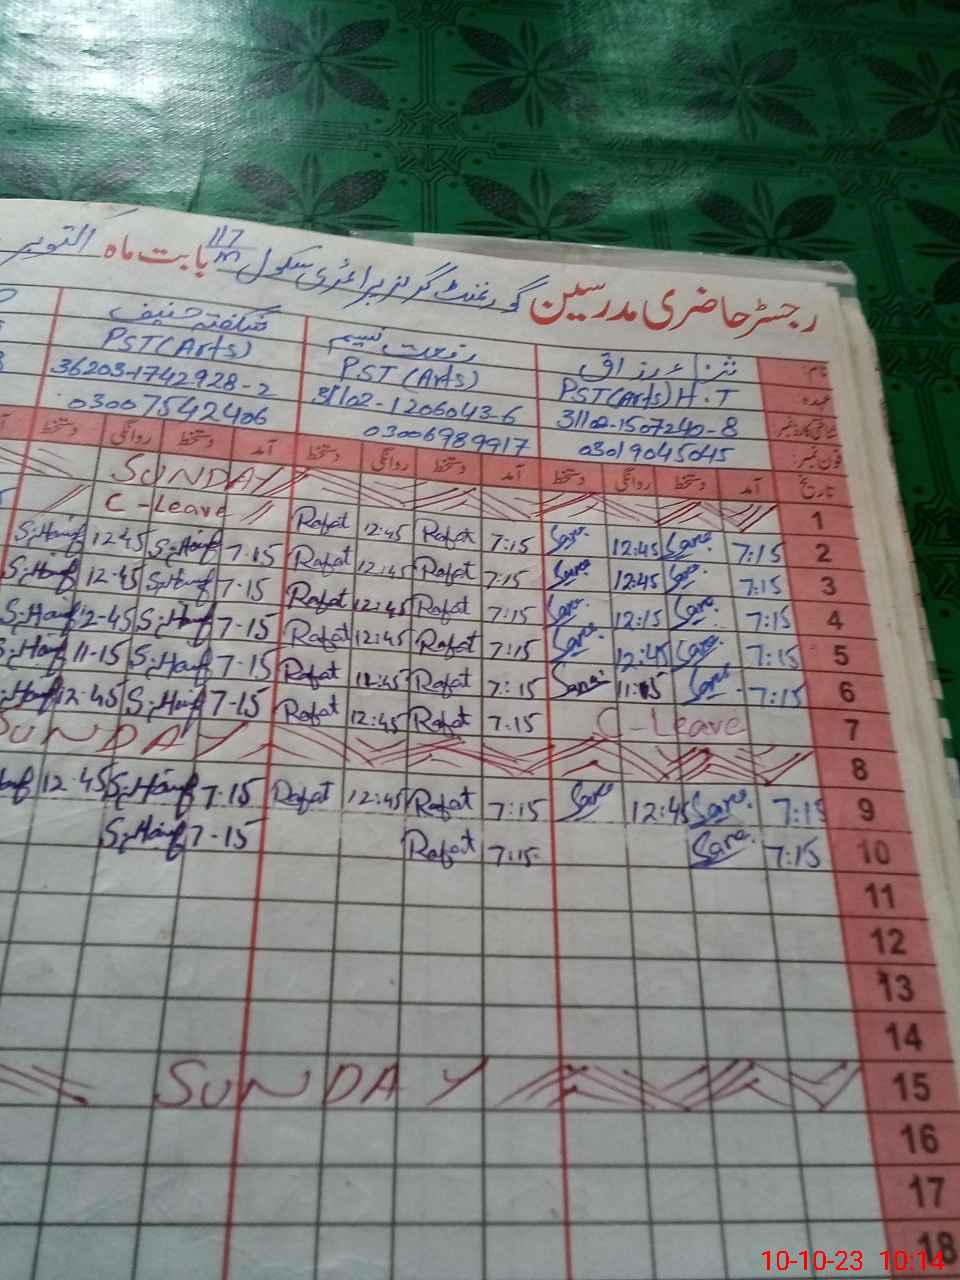 رجسٹر حاضری مدرسین گورنمنٹ گرلز پرائمری سکول 117/M بابت ماہ اکتوبر
نام: ثناء رزاق رفعت نسیم شگفتہ حنیف
عہدہ PST(Arts) H.T PST (Arts) PST(Arts)
شناختی کارڈ نمبر 31102-1507240-8 31102-1206043-6 36203-1742928-2
فون نمبر: 03019045045 03006989917 03007542406
تاریخ آمد دستخط روانگی دستخط آمد دستخط روانگی دستخط آمد دستخط روانگی دستخط
1 SUNDAY
2 7:15 Sana. 12:45 Sana. 7:15 Rafat 12:45 Rafat C-Leave
3 7:15 Sana. 12:45 Sana. 7:15 Rafat 12:45 Rafat 7.15 S.Hanif 12.45 S.Hanif
4 7:15 Sana. 12:15 Sana. 7:15 Rafat 12:45 Rafat 7.15 S.Hanif 12.45 S.Hanif
5 7:15 Sana. 12:45 Sana. 7:15 Rafat 12:45 Rafat 7-15 S.Hanif 12-45 S.Hanif
6 7:15 Sana. 11:15 Sana. 7:15 Rafat Rafat 7-15 S.Hanif 11-15 S.Hanif
7 C-Leave 7:15 Rafat 12:45 Rafat 7-15 S.Hanif 12.45
8 SUNDAY
9 7:15 Sana. 12:45 Sana 7:15 Rafat 12:45 Rafat 7.15 S.Hanif 12.45
10 7:15 Sana. 7:15 Rafat 7-15 S.Hanif
11
12
13
14
15 SUNDAY
16
17
18
10-10-23 10:14